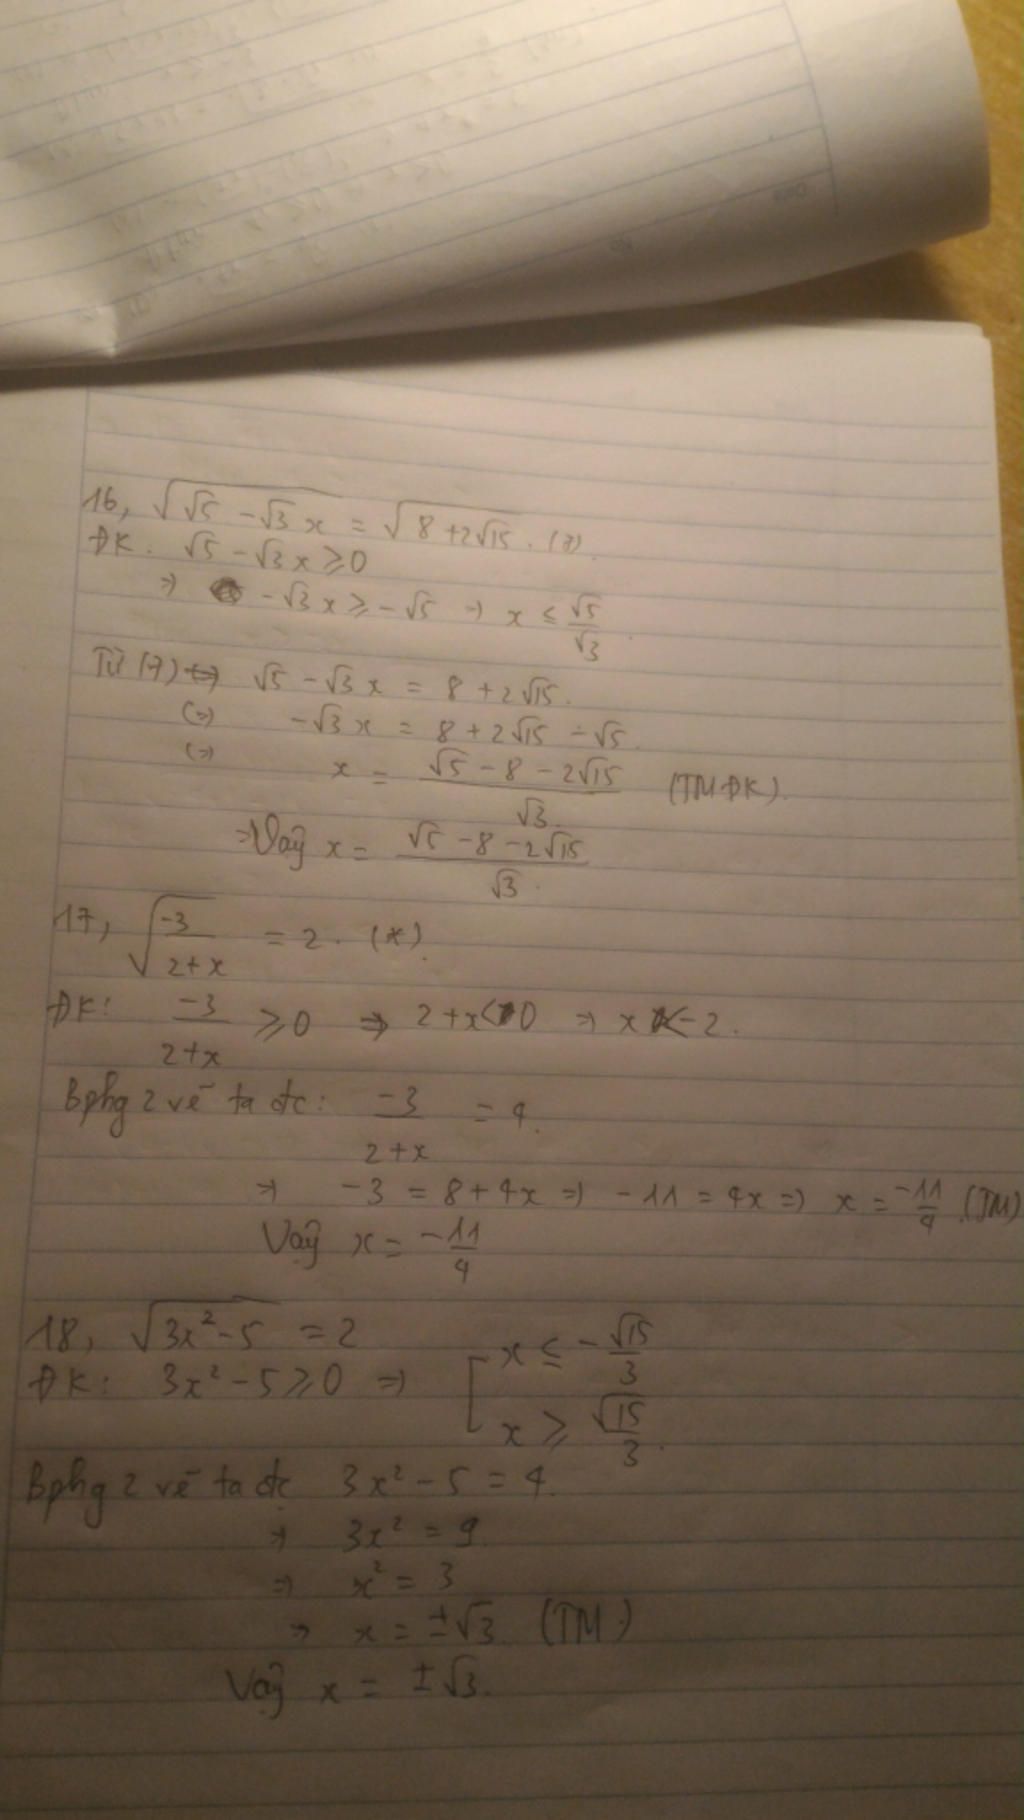 16, √(√5 - √3 x) = √(8 + 2√15). (7).
ĐK: √5 - √3 x ≥ 0
⇒ -√3 x ≥ -√5 ⇒ x ≤ √5/√3.
Từ (7) ⇔ √5 - √3 x = 8 + 2√15.
(⇒) -√3 x = 8 + 2√15 - √5.
(⇒) x = (√5 - 8 - 2√15)/√3. (TMĐK).
⇒ Vậy x = (√5 - 8 - 2√15)/√3.
17, √(-3/(2+x)) = 2. (*).
ĐK: -3/(2+x) ≥ 0 ⇒ 2+x < 0 ⇒ x < -2.
Bphg 2 vế ta đc: -3/(2+x) = 4.
⇒ -3 = 8 + 4x ⇒ -11 = 4x ⇒ x = -11/4. (TM)
Vậy x = -11/4
18, √(3x² - 5) = 2
ĐK: 3x² - 5 ≥ 0 ⇒ [ x ≤ -√15/3
x ≥ √15/3.
Bphg 2 vế ta đc 3x² - 5 = 4.
⇒ 3x² = 9.
⇒ x² = 3
⇒ x = ±√3. (TM)
Vậy x = ±√3.